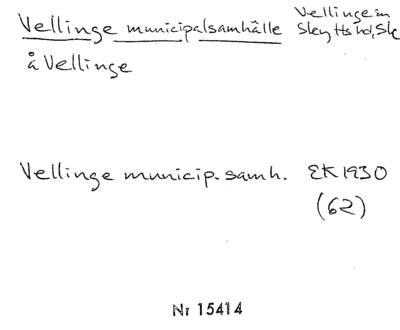 Vellinge municipalsamhälle Vellinge sn
Skytts hd, Sk
å Vellinge
Vellinge municip. samh. EK 1930
(62)
Nr 15414